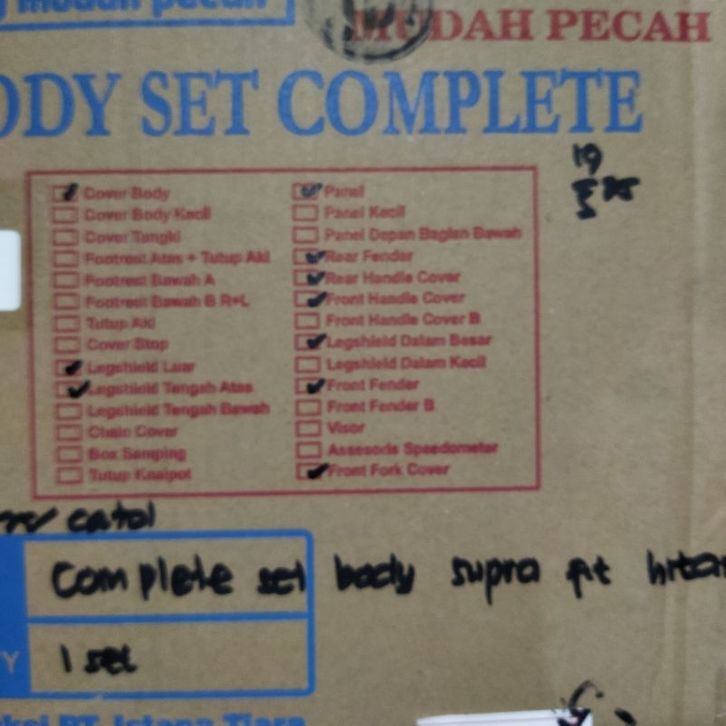 mudah pecah
MUDAH PECAH
ODY SET COMPLETE
19
Cover Body
Cover Body Kecil
Cover Tangki
Footrest Atas + Tutup Aki
Footrest Bawah A
Footrest Bawah B R+L
Tutup Aki
Cover Stop
Legshield Luar
Legshield Tengah Atas
Legshield Tengah Bawah
Chain Cover
Box Samping
Tutup Knalpot
Panel
Panel Kecil
Panel Depan Bagian Bawah
Rear Fender
Rear Handle Cover
Front Handle Cover
Front Handle Cover B
Legshield Dalam Besar
Legshield Dalam Kecil
Front Fender
Front Fender B
Visor
Assesoris Speedometer
Front Fork Cover
Complete set body supra fit hitam
Y 1 set
PT Istana Tiara